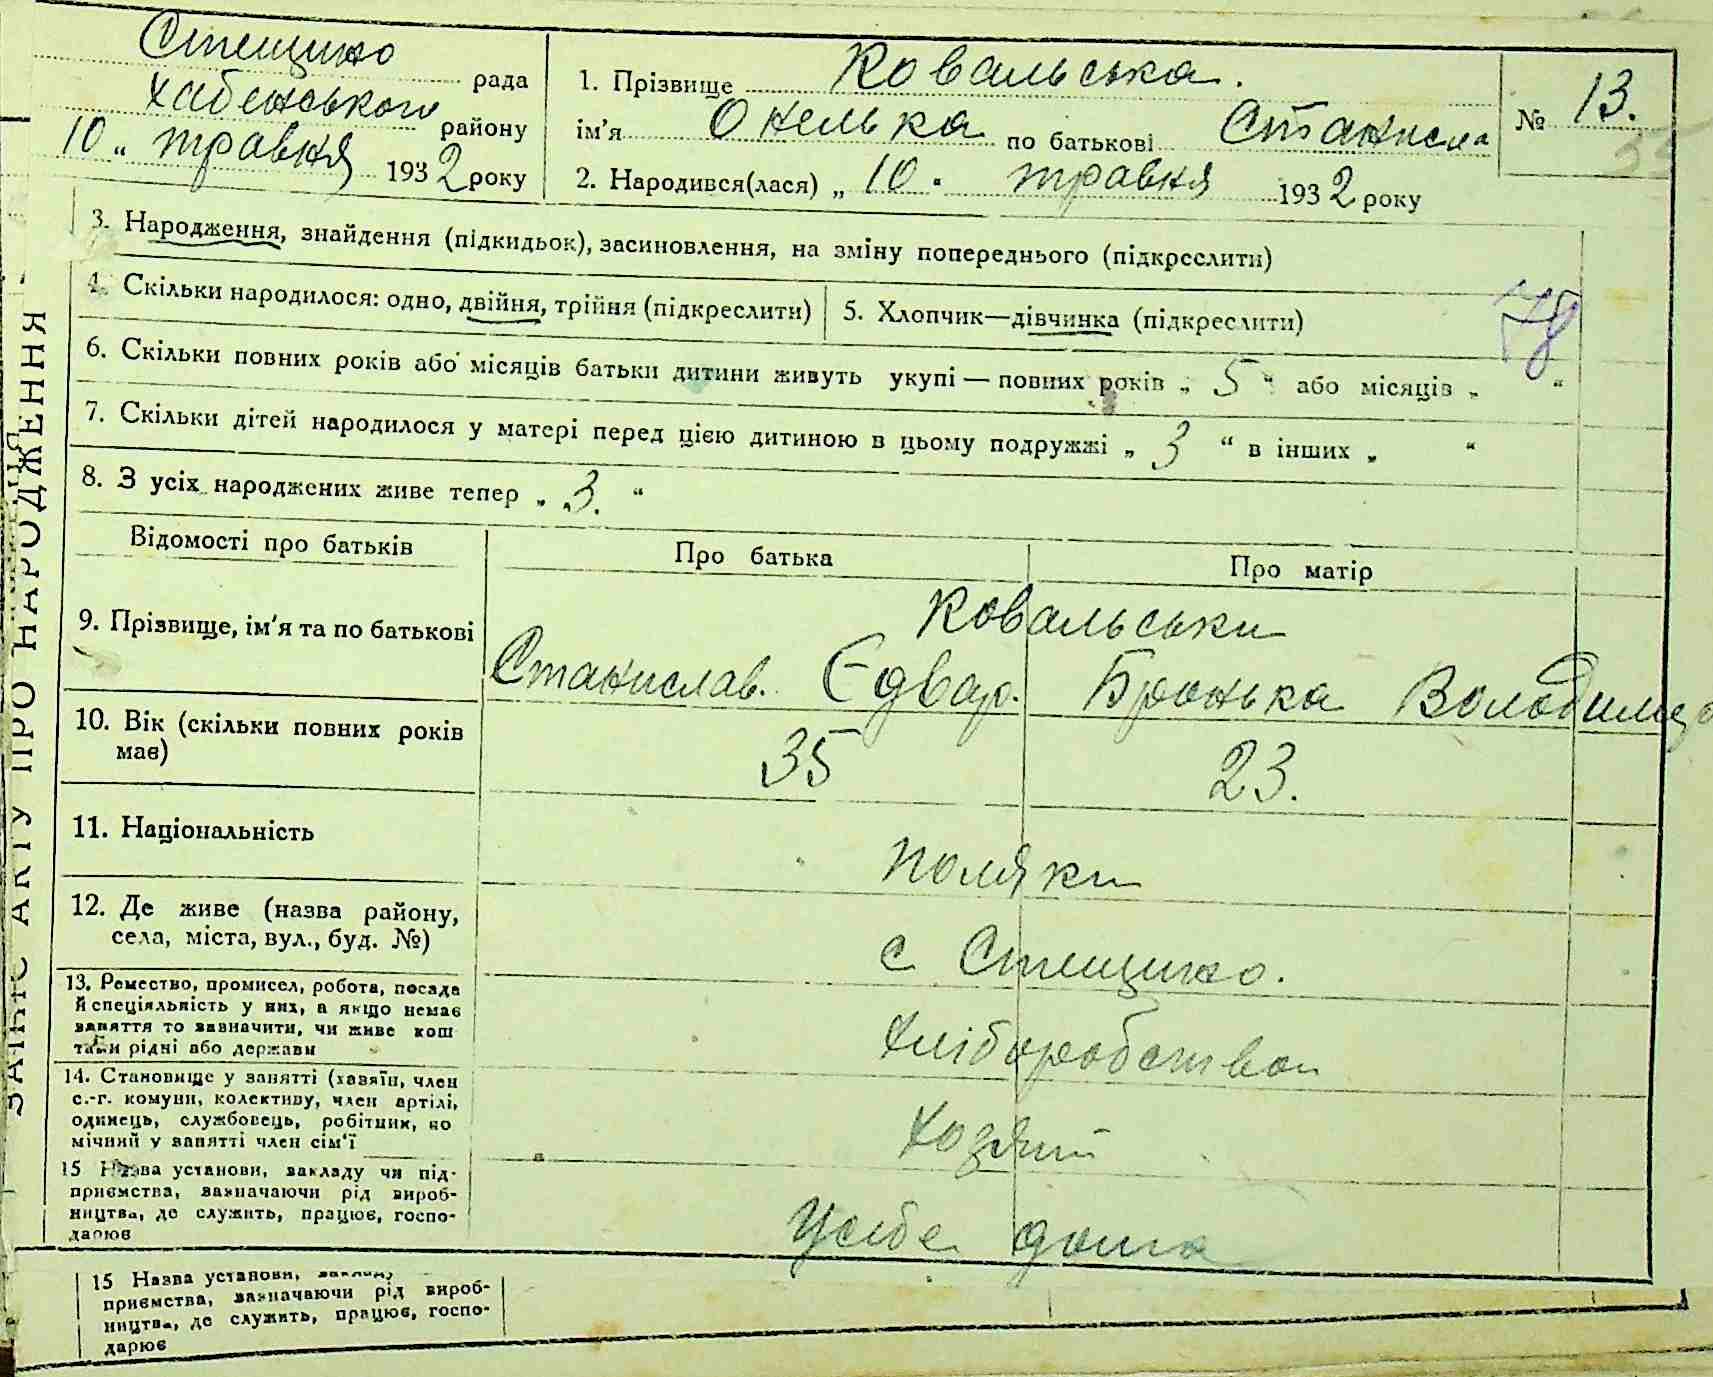 Стещино рада
Хабенського району
10 „ травня 1932 року
1. Прізвище Ковальська.
ім'я Онелька по батькові Станисла
2. Народився(лася) „ 10 " травня 1932 року
№ 13.
3. Народження, знайдення (підкидьок), засиновлення, на зміну попереднього (підкреслити)
4. Скільки народилося: одно, двійня, трійня (підкреслити)
5. Хлопчик—дівчинка (підкреслити)
78
6. Скільки повних років або місяців батьки дитини живуть укупі — повних років „ 5 “ або місяців „ “
7. Скільки дітей народилося у матері перед цією дитиною в цьому подружжі „ 3 “ в інших „ “
8. З усіх народжених живе тепер „ 3. “
Відомості про батьків
Про батька
Про матір
9. Прізвище, ім'я та по батькові
Ковальськи
Станислав. Єдвар.
Бронька Володимир
10. Вік (скільки повних років має)
35
23.
11. Національність
поляки
12. Де живе (назва району,
села, міста, вул., буд. №)
с Стещино.
13. Ремество, промисел, робота, посада
й спеціяльність у них, а якщо немає
заняття то зазначити, чи живе кош
тами рідні або держави
Хліборобство
14. Становище у занятті (хазяїн, член
с.-г. комуни, колективу, член артілі,
одинець, службовець, робітник, по
мічний у занятті член сім'ї
Хозяїн
15 Назва установи, закладу чи під-
приємства, зазначаючи рід вироб-
ництва, де служить, працює, госпо-
дарює
У себе дома
15 Назва установи, закладу
приємства, зазначаючи рід вироб-
ництва, де служить, працює, госпо-
дарює
ЗАПИС АКТУ ПРО НАРОДЖЕННЯ